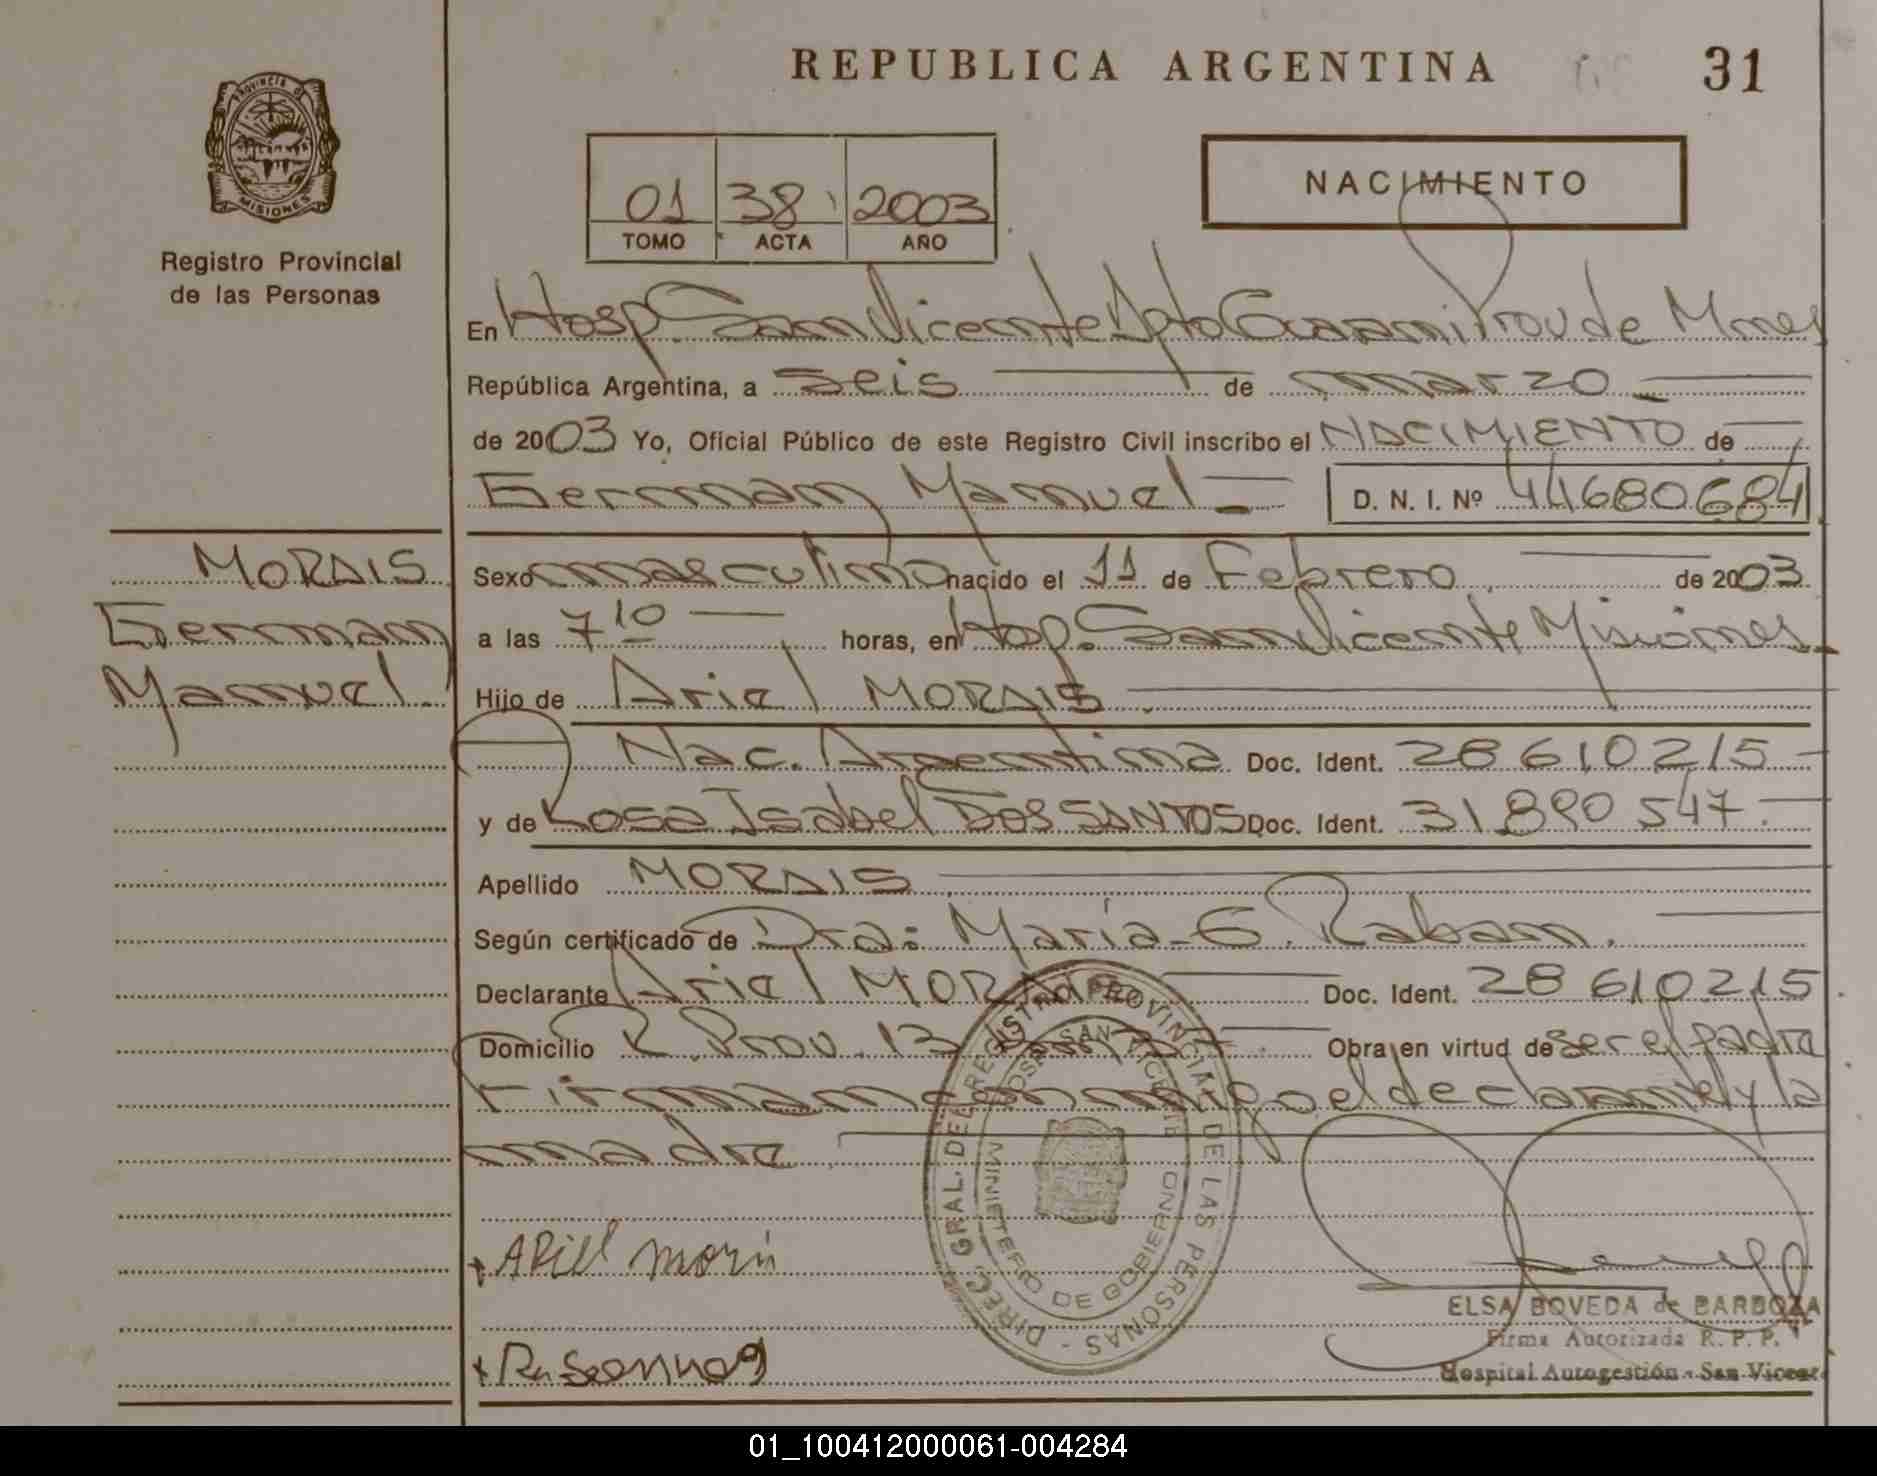 REPUBLICA ARGENTINA
31
PROVINCIA D
MISIONES
Registro Provincial
de las Personas
01 38 2003
TOMO ACTA AÑO
NACIMIENTO
En Hosp. San Vicente Dpto Guarani Prov de Mnes
República Argentina, a seis de marzo
de 2003 Yo, Oficial Público de este Registro Civil inscribo el NACIMIENTO de
German Manuel D. N. I. Nº 44680684
MORAIS
German
Manuel.
Sexo masculino nacido el 11 de Febrero de 2003
a las 7 10 horas, en Hosp. San Vicente Misiones
Hijo de Ariel MORAIS.
Nac. Argentina Doc. Ident. 28 610215
y de Rosa Isabel Dos SANTOS Doc. Ident. 31.890 547.
Apellido MORAIS
Según certificado de Dra: María G. Raban.
Declarante Ariel MORAIS Doc. Ident. 28 610215
Domicilio R. Prov. 13 Obra en virtud de ser el padre
Firman conmigo el declarante y la
madre
DIREC. GRAL. DEL REGISTRO PROVINCIAL DE LAS PERSONAS -
HOSP. SAN VICENTE
MINISTERIO DE GOBIERNO
ARiel
ELSA BOVEDA de BARBOZA
Firma Autorizada R. P. P.
Hospital Autogestión - San Vicente
01_100412000061-004284